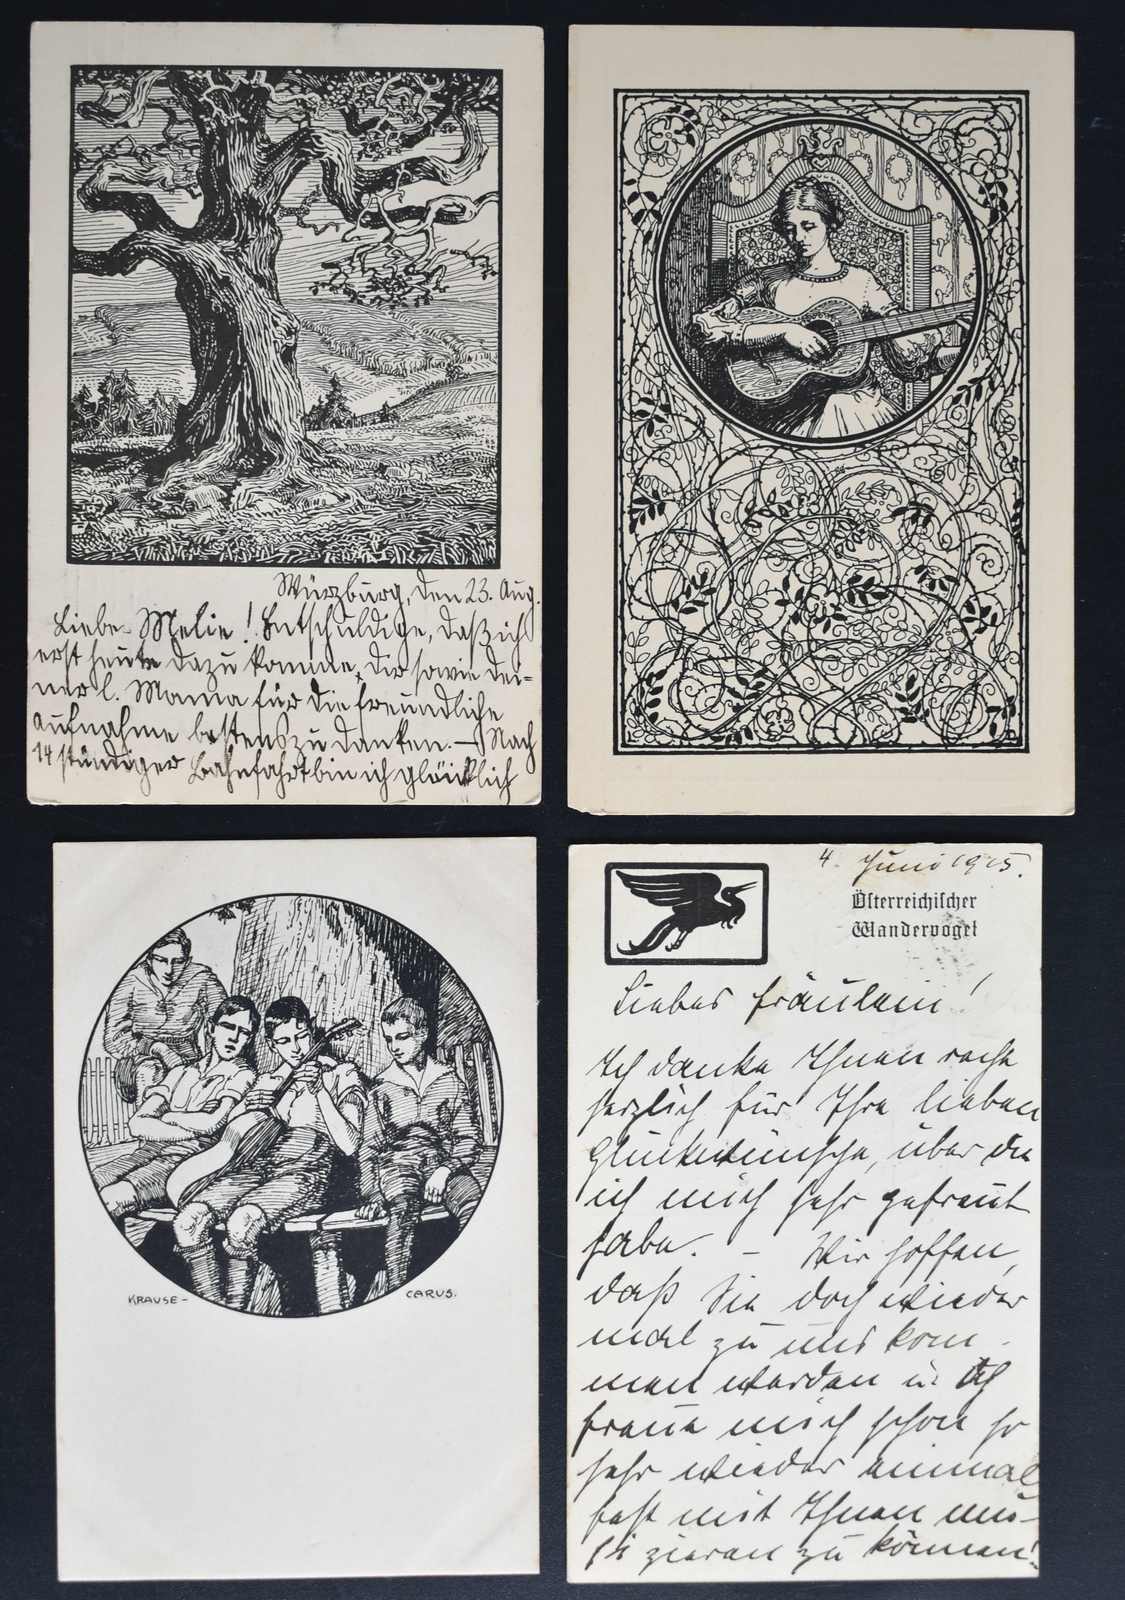 Würzburg, den 23. Aug.
Liebe Melie! Entschuldige, daß ich
erst heute dazu komme, dir sowie dei=
ner l. Mama für die freundliche
Aufnahme bestens zu danken. – Nach
14 stündiger Bahnfahrt bin ich glücklich
KRAUSE –
CARUS.
4. Juni 1915.
Österreichischer
Wandervogel
Liebes Fräulein!
Ich danke Ihnen recht
herzlich für Ihre lieben
Glückwünsche, über die
ich mich sehr gefreut
habe. – Wir hoffen,
daß Sie doch wieder
mal zu uns kom-
men werden u. ich
freue mich schon so
sehr wieder einmal
fest mit Ihnen mu-
sizieren zu können!